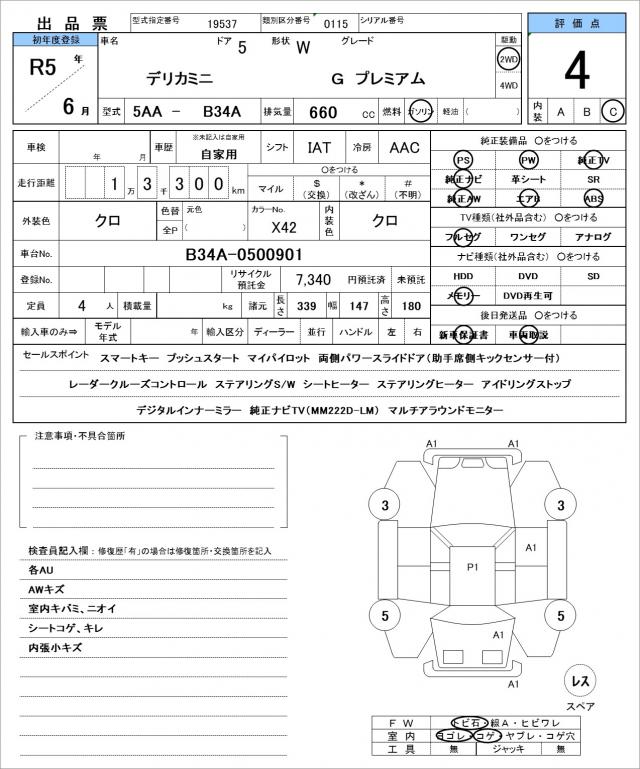 出 品 票 型式指定番号 19537 類別区分番号 0115 シリアル番号 評 価 点
初年度登録 車名 ドア 5 形状 W グレード 駆動
R5 年 デリカミニ G プレミアム 2WD 4
4WD
6 月 型式 5AA － B34A 排気量 660 cc 燃料 ガソリン 軽油 （ ） 内装 A B C
車検 年 月 車歴 ※未記入は自家用 自家用 シフト IAT 冷房 AAC 純正装備品 〇をつける
PS PW 純正TV
走行距離 1 万 3 千 300 km 〇をつける 純正ナビ 革シート SR
マイル $ （交換） * （改ざん） # （不明） 純正AW エアB ABS
外装色 クロ 色替 元色 カラーNo. X42 内装色 クロ TV種類（社外品含む） 〇をつける
全P （ ） フルセグ ワンセグ アナログ
車台No. B34A-0500901 ナビ種類（社外品含む） 〇をつける
登録No. リサイクル預託金 7,340 円預託済 未預託 HDD DVD SD
定員 4 人 積載量 kg 諸元 長さ 339 幅 147 高さ 180 メモリー DVD再生可
後日発送品 〇をつける
輸入車のみ⇒ モデル年式 年 輸入区分 ディーラー 並行 ハンドル 左 右 新車保証書 車両取説
セールスポイント スマートキー プッシュスタート マイパイロット 両側パワースライドドア（助手席側キックセンサー付）
レーダークルーズコントロール ステアリングS/W シートヒーター ステアリングヒーター アイドリングストップ
デジタルインナーミラー 純正ナビTV（MM222D-LM） マルチアラウンドモニター
注意事項・不具合箇所
A1 A1
3 3
A1
P1
5 5
A1
A1
検査員記入欄：修復歴「有」の場合は修復箇所・交換箇所を記入
各AU
AWキズ
室内キバミ、ニオイ
シートコゲ、キレ
内張小キズ
レス
スペア
F W トビ石・線A・ヒビワレ
室 内 ヨゴレ・コゲ・ヤブレ・コゲ穴
工 具 無 ジャッキ 無